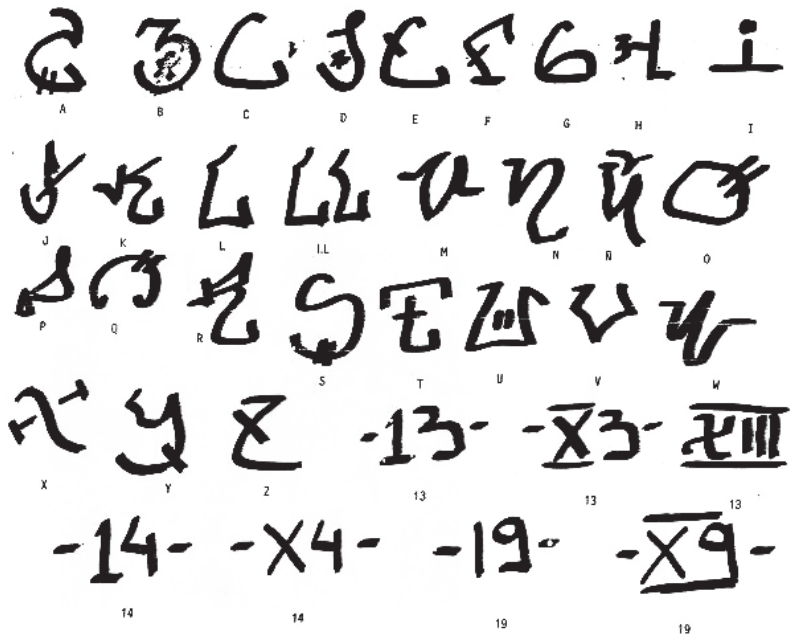 A B C D E F G H I
J K L LL M N Ñ O
P Q R S T U V W
X Y Z -13- -X3- XIII
13 13 13
-14- -X4- -19- -X9-
14 14 19 19